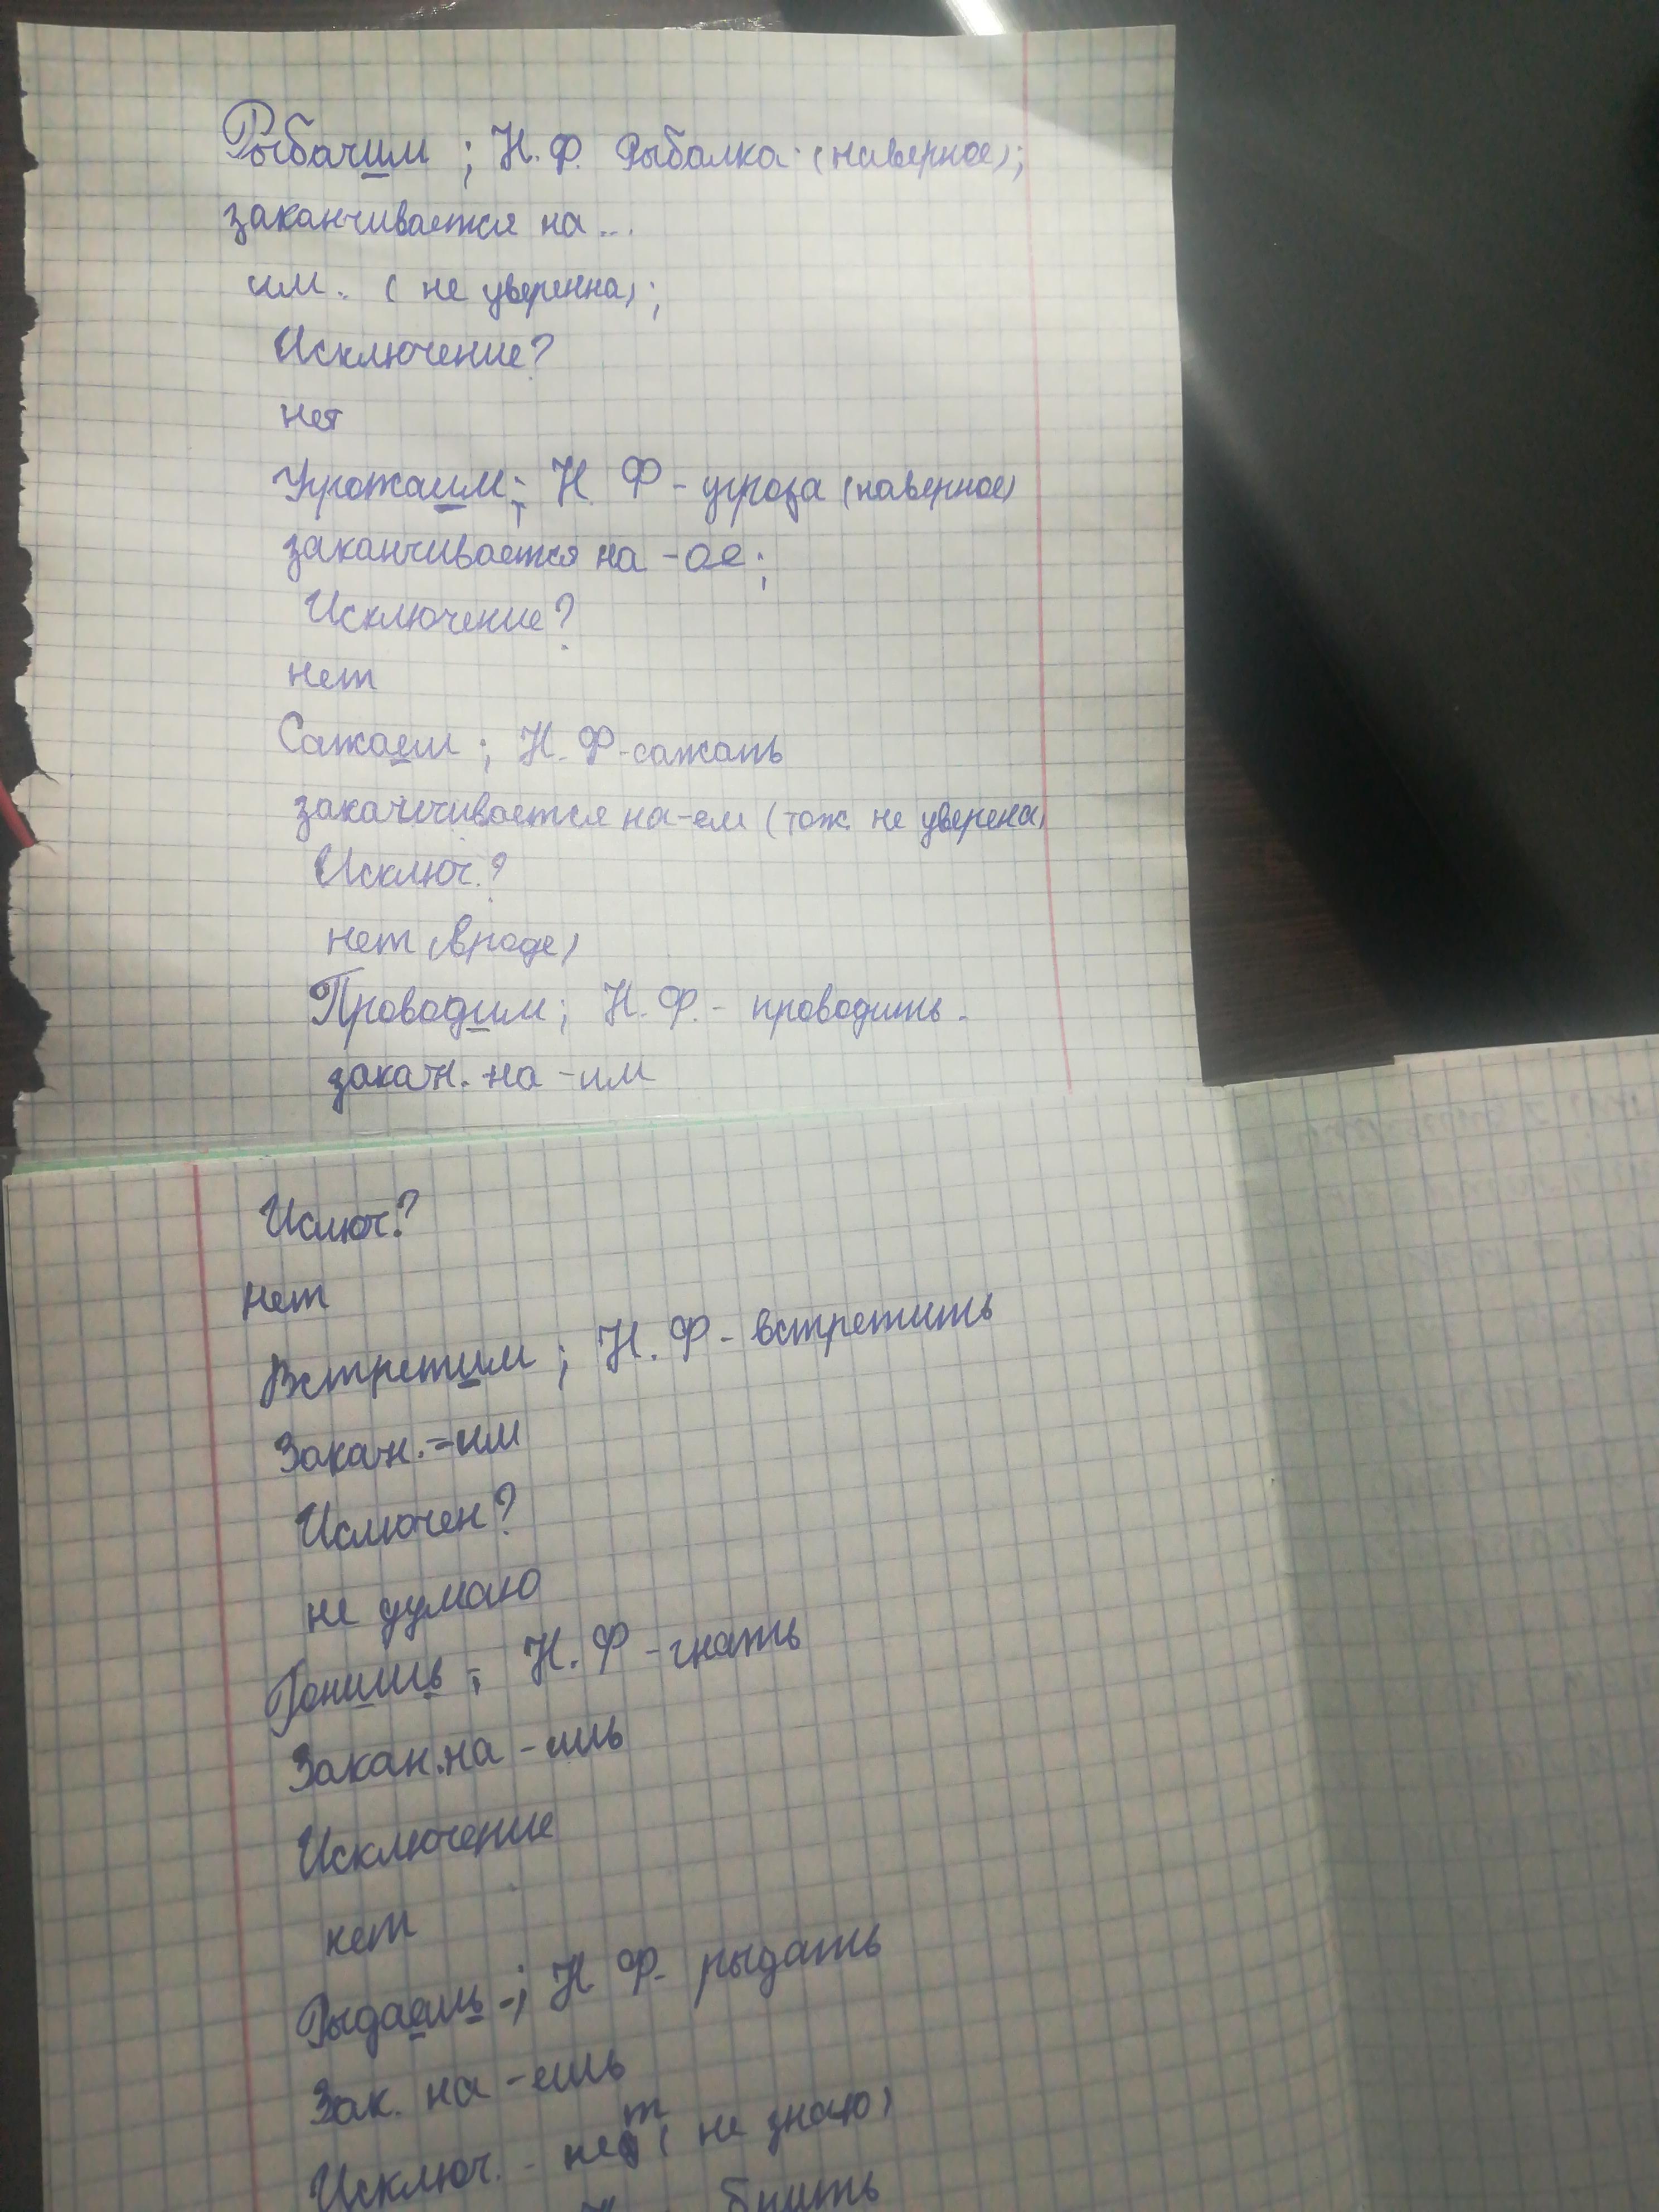 Рыбачим ; Н.Ф. Рыбалка (наверное);
заканчивается на...
им. ( не уверенна);
Исключение?
нет
Угрожаим; Н. Ф - угроза (наверное)
заканчивается на -ое;
Исключение?
нет
Сажаем ; Н. Ф-сажать
заканчивается на-ем (тож. не уверена)
Исключ.?
нет (вроде)
Проводим; Н. Ф. - проводить.
закан. на -им
Исключ.?
нет
Встретим ; Н. Ф - встретить
Закан. -им
Исключен?
не думаю
Гонишь ; Н. Ф - гнать
Закан.на - ишь
Исключение
нет
Рыдаешь -; Н Ф- рыдать
Зак. на - ешь
Исключ. - нет ( не знаю)